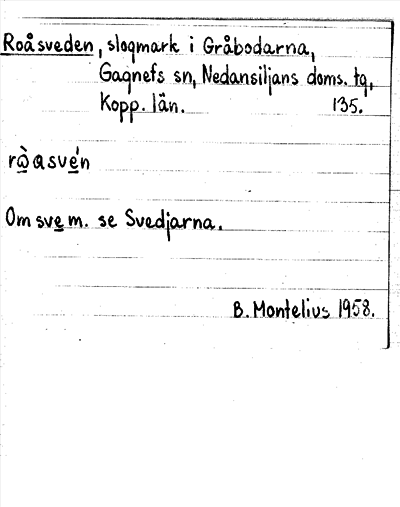 Roåsveden, slogmark i Gråbodarna,
Gagnefs sn, Nedansiljans doms. tg,
Kopp. län. 135.
rὼɑsve̲ń
Om sve̲ m. se Svedjarna.
B. Montelius 1958.